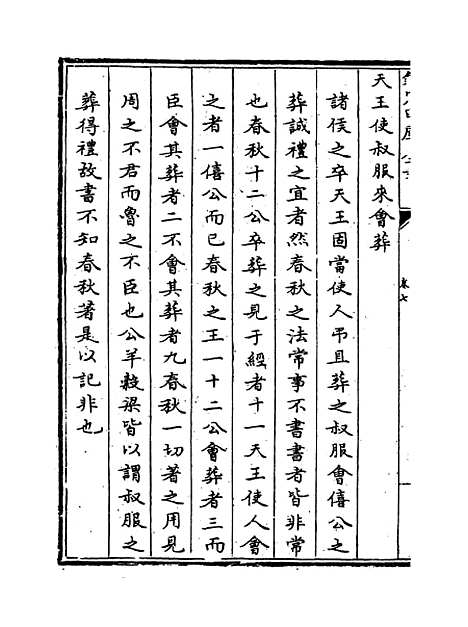 天王使叔服來會葬
諸侯之卒天王固當使人弔且葬之叔服會僖公之
葬誠禮之宜者然春秋之法常事不書書者皆非常
也春秋十二公卒葬之見于經者十一天王使人會
之者一僖公而已春秋之王一十二公會葬者三而
臣會其葬者二不會其葬者九春秋一切著之用見
周之不君而魯之不臣也公羊穀梁皆以謂叔服之
葬得禮故書不知春秋著是以記非也
卷七